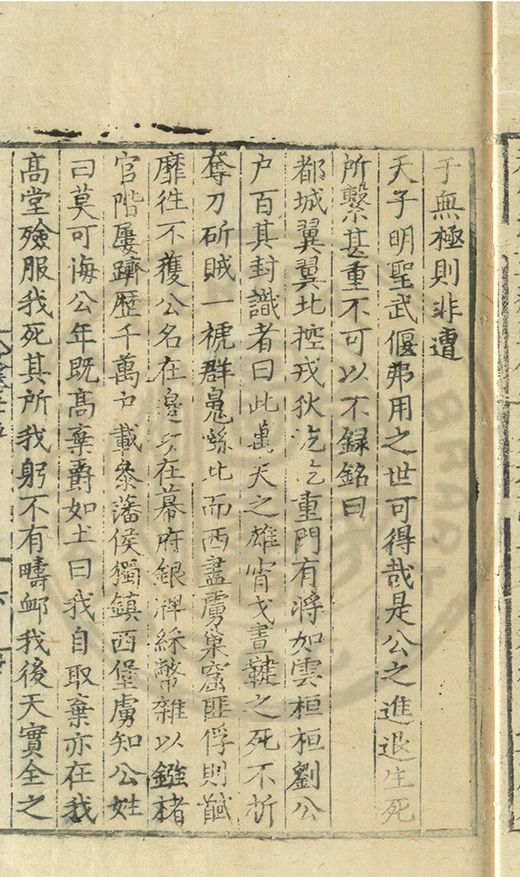 于無極則非遭
天子明聖武偃弗用之世可得哉是公之進退生死
所繫甚重不可以不録銘曰
都城翼翼北控戎狄汔汔重門有将如雲桓桓劉公
户百其封識者曰此萬天之雄宵戈晝鞬之死不折
奪刀斫賊一褫群鬼北而西盡虜巢窟匪俘則馘
靡徃不獲公名在邉功在幕府銀牌綵幣雜以鏹楮
官階屢躋歴千萬户載叅藩侯獨鎮西堡虜知公姓
曰莫可海公年既髙棄爵如土曰我自取棄亦在我
髙堂殮服我死其所我躬不有疇衈我後天實全之